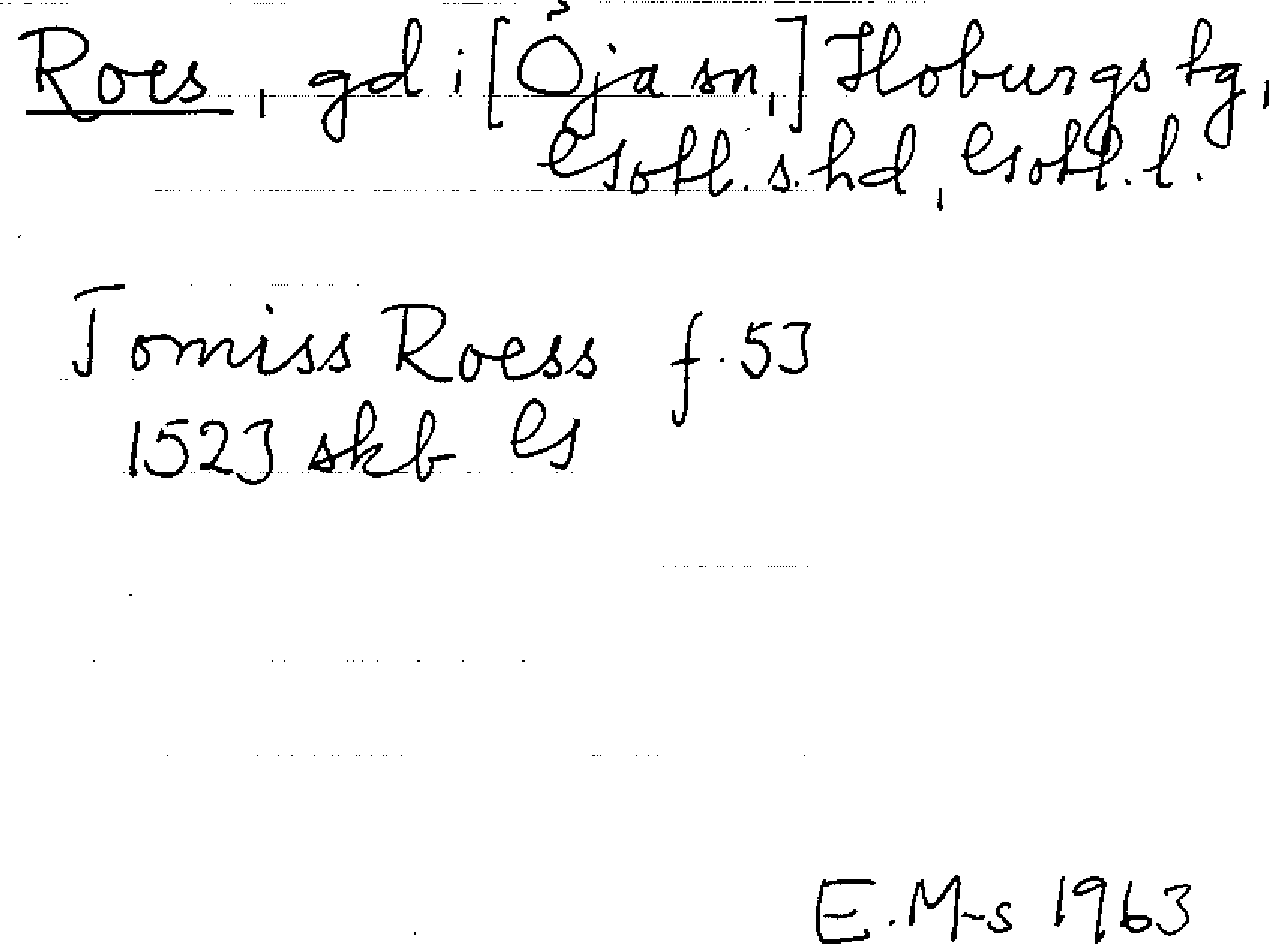 Roes, gd i [Öja sn,] Hoburgs tg,
Gotl. s. hd, Gotl. l.
Tomiss Roess f. 53
1523 skb G
E. M-s 1963